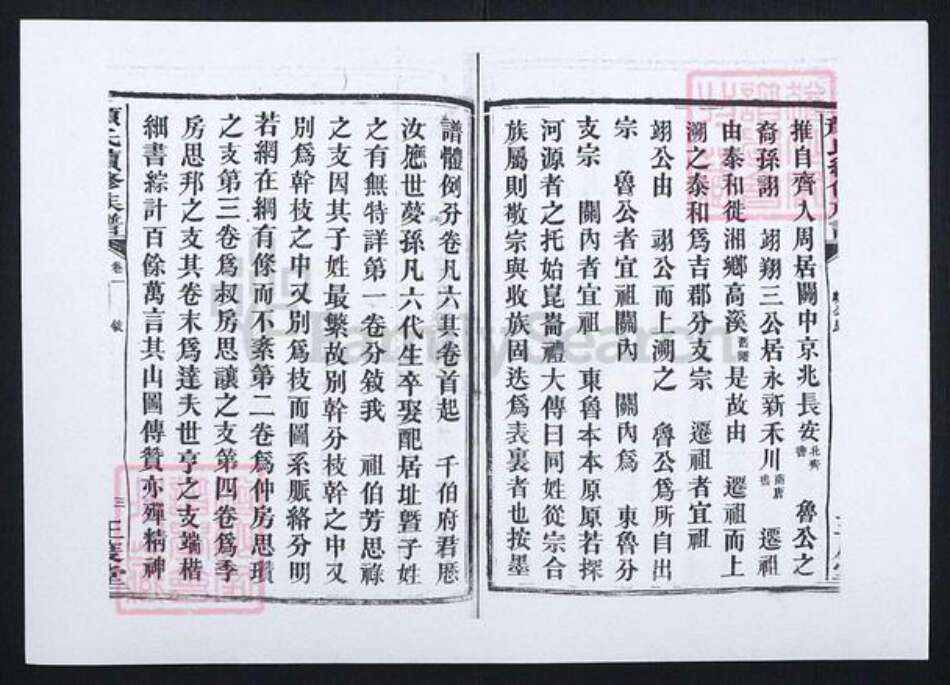 推自齊入周居關中京兆長安北齊書 魯公之
裔孫詡 翊翔三公居永新禾川南唐也 遷祖
由泰和徙湘鄉高溪舊隴是故由 遷祖而上
溯之泰和爲吉郡分支宗 遷祖者宜祖
翊公由 翊公而上溯之 魯公爲所自出
宗 魯公者宜祖關內 關內爲 東魯分
支宗 關內者宜祖 東魯本本原原若探
河源者之托始崑崙禮大傳曰同姓從宗合
族屬則敬宗與收族固迭爲表裏者也按墨
譜體例分卷凡六其卷首起 千伯府君歷
汝應世蔓孫凡六代生卒娶配居址曁子姓
之有無特詳第一卷分敍我 祖伯芳思祿
之支因其子姓最繁故別幹分枝幹之中又
別爲幹枝之中又別爲枝而圖系脈絡分明
若網在綱有條而不紊第二卷爲仲房思瓚
之支第三卷爲叔房思讓之支第四卷爲季
房思邦之支其卷末爲達夫世亨之支端楷
細書綜計百餘萬言其山圖傳贊亦殫精神
氏續修族譜
卷一
敍
三